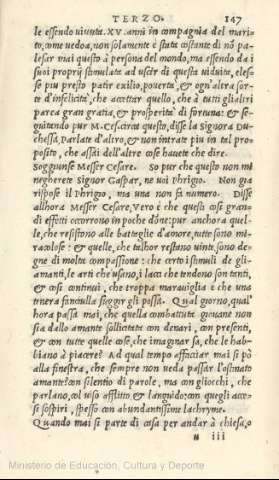 TERZO. 147
le essendo viuuta .XV. anni in compagnia del mari-
to, come vedoa, non solamente è stata costante di nō pa-
lesar mai questo à persona del mondo, ma essendo da i
suoi proprij stimulata ad uscir di questa viduità, eles-
se piu presto patir exilio, pouertà, & ogn'altra sor-
te d'infelicità, che accettar quello, che à tutti gli altri
parea gran gratia, & prosperità di fortuna: & se-
guitando pur M. Cesar circa questo, disse la Signora Du-
chessa, Parlate d'altro, & non intrate piu in tal pro-
posito, che assai dell'altre cose hauete che dire.
Soggiunse Messer Cesare. So pur che questo non mi
negherete Signor Gaspar, ne uoi Phrigio. Non già
rispose il Phrigio, ma una non fa numero. Disse
allhora Messer Cesare, Vero è che questi così gran-
di effetti occorrono in poche dōne: pur anchora quel-
le, che resistono alle battaglie d'amore, tutte sono mi-
racolose: & quelle, che talhor restano uinte, sono de-
gne di molta compassione: che certo i stimuli de gli
amanti, le arti che usano, i lacci che tendono son tanti,
& così continui, che troppa marauiglia è che una
tenera fanciulla fuggir gli possa. Qual giorno, qual'
hora passa mai, che quella combattuta giouane non
sia dallo amante sollicitata con denari, con presenti,
& con tutte quelle cose, che imaginar sa, che le hab-
biano à piacere? A d qual tempo affacciar mai si pò
alla finestra, che sempre non ueda passar l'ostinato
amante? con silentio di parole, ma con gliocchi, che
parlano, col uiso afflitto & languido: con quegli acce-
si sospiri, spesso con abundantissime lachryme.
Quando mai si parte di casa per andar à chiesa, o
iii
Ministerio de Educación, Cultura y Deporte